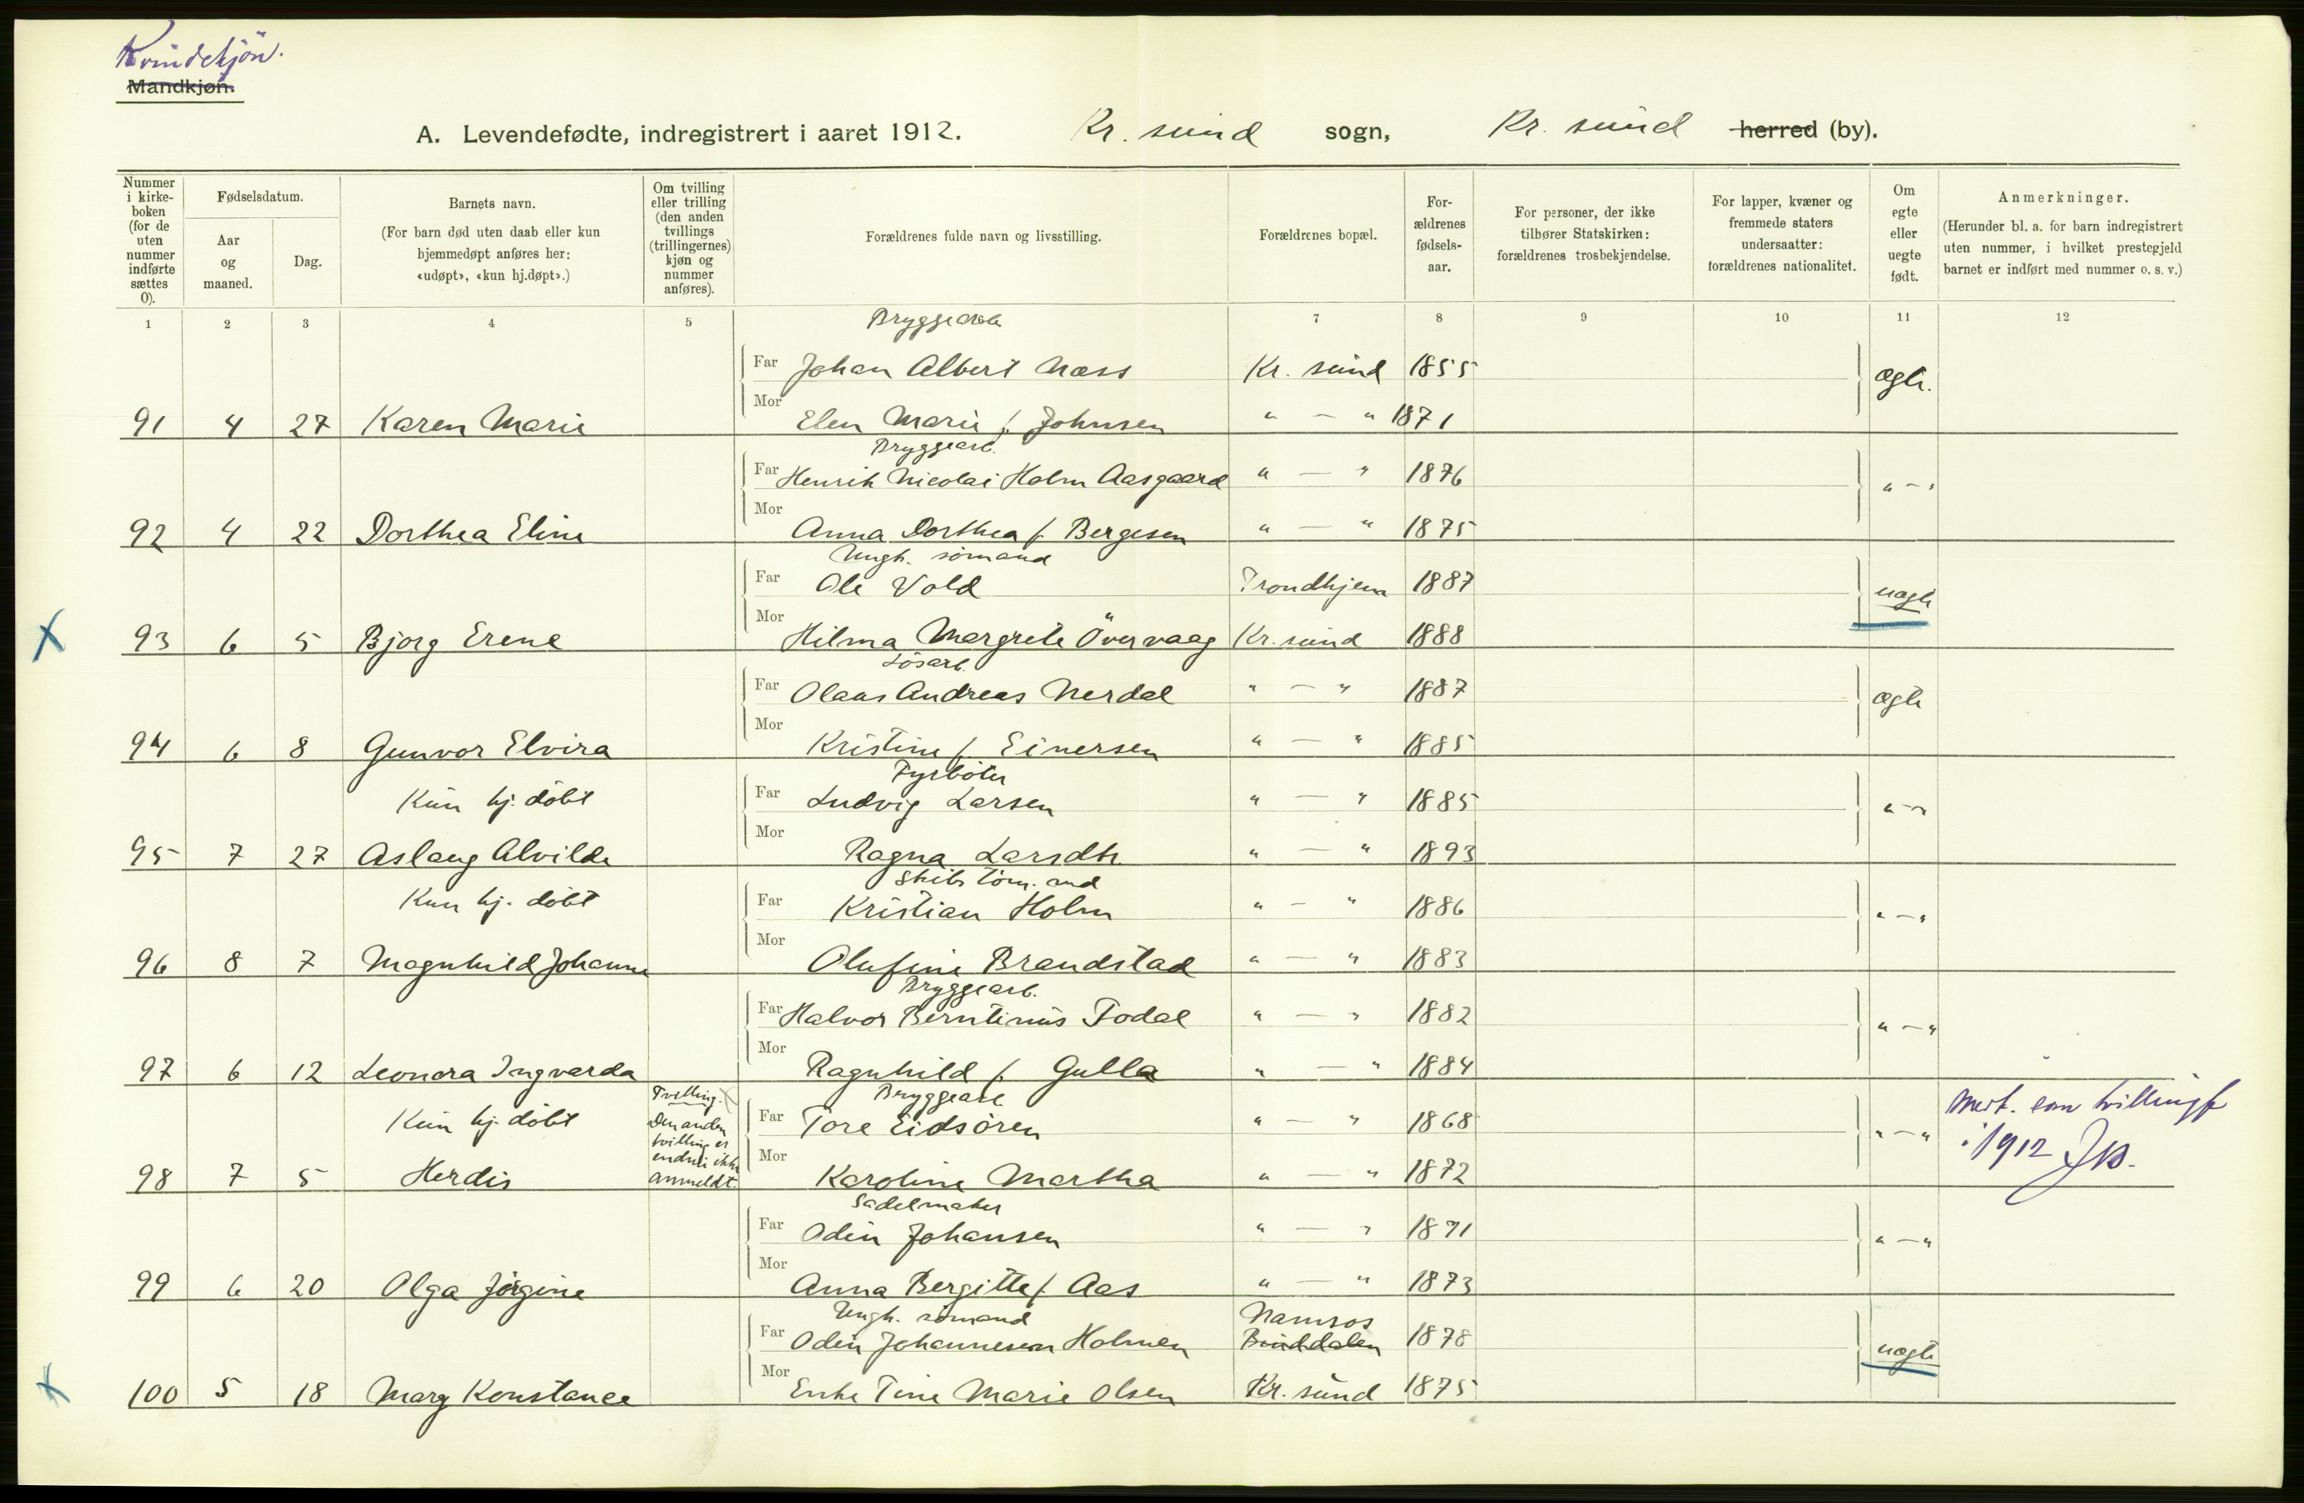 Kvindekjön.
Mandkjøn.
A. Levendefødte, indregistrert i aaret 1912. Kr. sund sogn, Kr. sund herred (by).
Nummer i kirke-boken (for de uten nummer indførte sættes 0).
Fødselsdatum.
Aar og maaned.
Dag.
Barnets navn.
(For barn død uten daab eller kun hjemmedøpt anføres her: «udøpt», «kun hj.døpt».)
Om tvilling eller trilling (den anden tvillings (trillingernes) kjøn og nummer anføres).
Forældrenes fulde navn og livsstilling.
Forældrenes bopæl.
For-ældrenes fødsels-aar.
For personer, der ikke tilhører Statskirken: forældrenes trosbekjendelse.
For lapper, kvæner og fremmede staters undersaatter: forældrenes nationalitet.
Om egte eller uegte født.
Anmerkninger.
(Herunder bl. a. for barn indregistrert uten nummer, i hvilket prestegjeld barnet er indført med nummer o. s. v.)
1 2 3 4 5 7 8 9 10 11 12
Bryggearb
Far Johan Albert Næss Kr. sund 1855 Ægte.
91 4 27 Karen Marie Mor Elen Marie f. Johnsen " — " 1871
Bryggearb.
Far Henrik Nicolai Holm Aasgaard " — " 1876 " — "
92 4 22 Dorthea Eline Mor Anna Dorthea f. Bergesen " — " 1875
Ungk. sømand
Far Ole Vold Trondhjem 1887 uægte
93 6 5 Bjorg Erene Mor Hilma Margrete Övervaag Kr. sund 1888
Løsarb.
Far Olaus Andreas Nerdal " — " 1887 Ægte
94 6 8 Gunvor Elvira Mor Kristine f. Einersen " — " 1885
Fyrböter
Kun hj. döbt Far Ludvig Larsen " — " 1885 " — "
95 7 27 Aslaug Alvilde Mor Ragna Larsdtr. " — " 1893
Skibstöm.md
Kun hj. döbt Far Kristian Holm " — " 1886 " — "
96 8 7 Magnhild Johanne Mor Olufine Brandstad " — " 1883
Bryggearb.
Far Halvor Berntinus Todal " — " 1882 " — "
97 6 12 Leonora Ingvarda Mor Ragnhild f. Gulla " — " 1884
Bryggearb
Kun hj. döbt Tvilling. Den anden tvilling er endnu ikke anmeldt. Far Tore Eidsören " — " 1868 " — " Merk. som tvillingf i 1912
98 7 5 Herdis Mor Karoline Martha " — " 1872
Sadelmaker
Far Odin Johansen " — " 1871 " — "
99 6 20 Olga Jörgine Mor Anna Bergitte f. Aas " — " 1873
Ungk. sømand Namsos
Far Odin Johannesen Holmen Binddalen 1878 uægte
100 5 18 Marg Konstance Mor Enke Tine Marie Olsen Kr. sund 1875